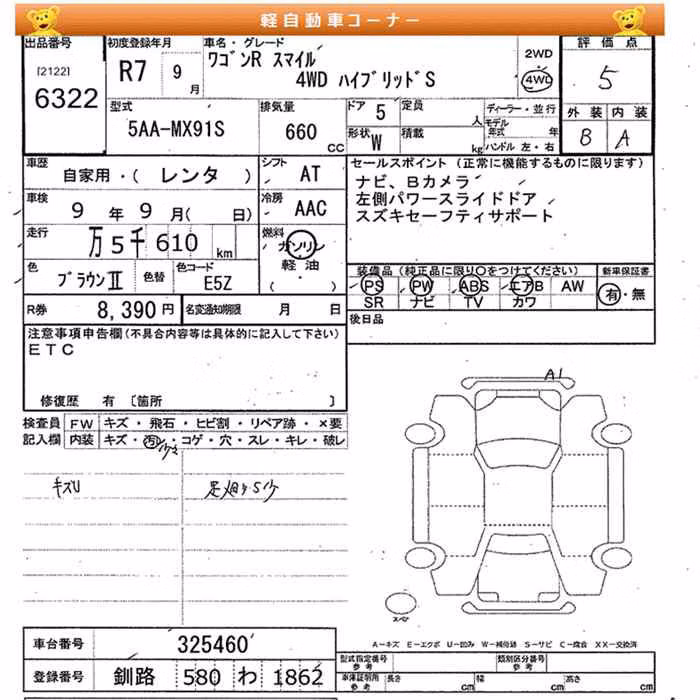 軽自動車コーナー
出品番号
[2122]
6322
初度登録年月
R7 9月
車名・グレード
ワゴンR スマイル
4WD ハイブリッドS
2WD
4WD
評価点
5
外装 内装
B A
型式
5AA-MX91S
排気量
660 cc
ドア 5
形状 W
定員 人
積載 kg
ディーラー・並行
モデル年式 年
ハンドル 左・右
車歴
自家用・( レンタ )
シフト AT
車検
9年 9月( 日)
冷房 AAC
走行
万5千610 km
燃料
ガソリン
軽油
( ・ )
色 ブラウンⅡ
色替
色コード E5Z
セールスポイント (正常に機能するものに限ります)
ナビ、Bカメラ
左側パワースライドドア
スズキセーフティサポート
装備品(純正品に限り○をつけてください)
新車保証書
PS PW ABS エアB AW
有・無
SR ナビ TV カワ
R券 8,390円
名変通知期限 月 日
後日品
注意事項申告欄(不具合内容等は具体的に記入して下さい)
ETC
修復歴 有 〔箇所 〕
検査員記入欄
FW キズ・飛石・ヒビ割・リペア跡・×要
内装 キズ・汚レ・コゲ・穴・スレ・キレ・破レ
A1
スペア
A-キズ E-エクボ U-凹み W-補修跡 S-サビ C-腐食 XX-交換済
車台番号 325460
登録番号 釧路 580 わ 1862
型式指定番号 参考
類別区分番号 参考
車庫証明用 参考
長さ cm 幅 cm 高さ cm